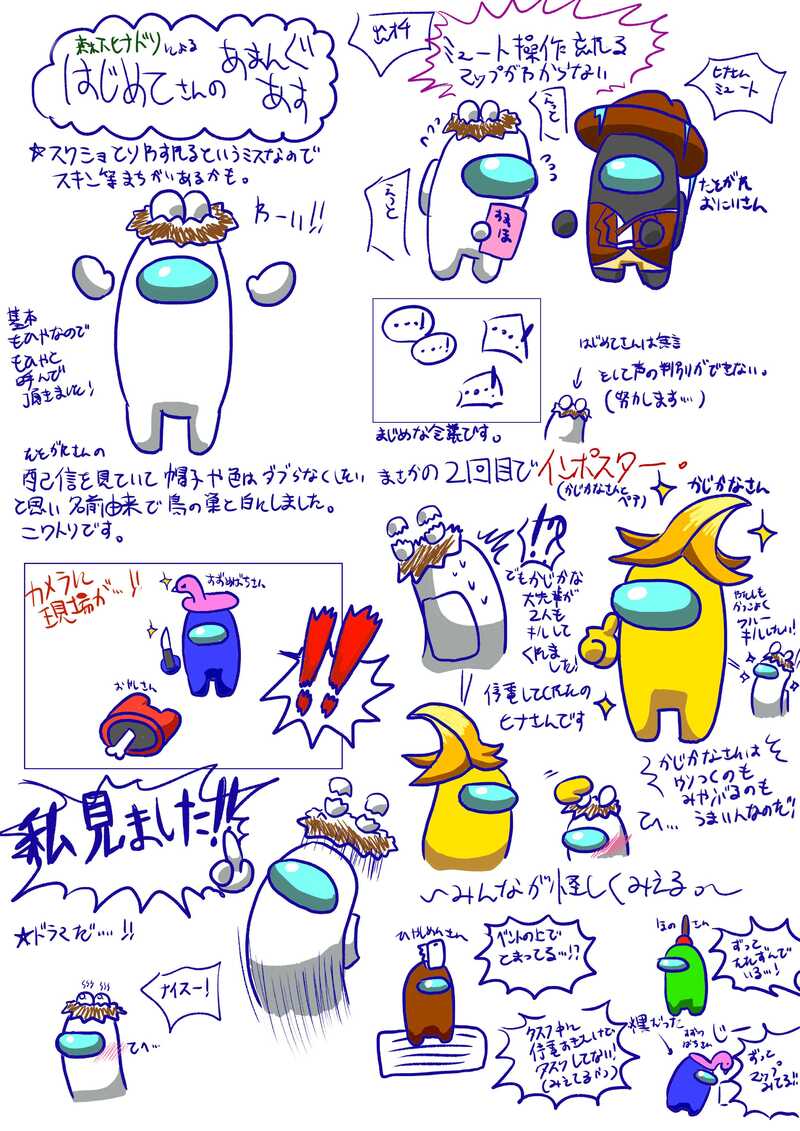 はじめてさんの
あまんぐ
あす
☆スクショとりわすれるというミスなので
スキン等まちがいあるかも。
わーい!!
基本
もひやなので
もひやと
呼んで
頂きました!
配信を見ていて帽子や色はダブらなくしたい
と思い名前由来で鳥の巣と白にしました。
ニワトリです。
カメラに
現場が…!!
すずめばちさん
おやしさん
!!
私見ました!!
☆ドラマだ…!!
ナイスー!
てへ…
出オチ
ミュート操作忘れる
マップがわからない
えっと
えっと
すまほ
ヒナさん
ミュート
たそがれ
おにいさん
…!
…!
…!
…!
まじめな会議です。
はじめてさんは無言
そして声の判別ができない。
(努力します…)
まさかの2回目でインポスター。
(かじかなさんと
ペア)
かじかなさん
!?
でもかじかな
大先輩が
2人も
キルして
くれました!
かっこよく
クルー
キルしたい!
停電してくれたの
ヒナさんです
かじかなさんは
ウソつくのも
みやぶるのも
うまいんなのだ!
てへ…
〜みんなが怪しくみえる。〜
ひやしめんさん
ベントの上で
とまってる…!?
タスク中に
停電おきただけで
タスクしてない!
(みえてるかっ)
ほのさん
ずって
たたずんで
いる…!
爆だった
すずめ
ばちさん
じー
ずって
マップ
みてる!!